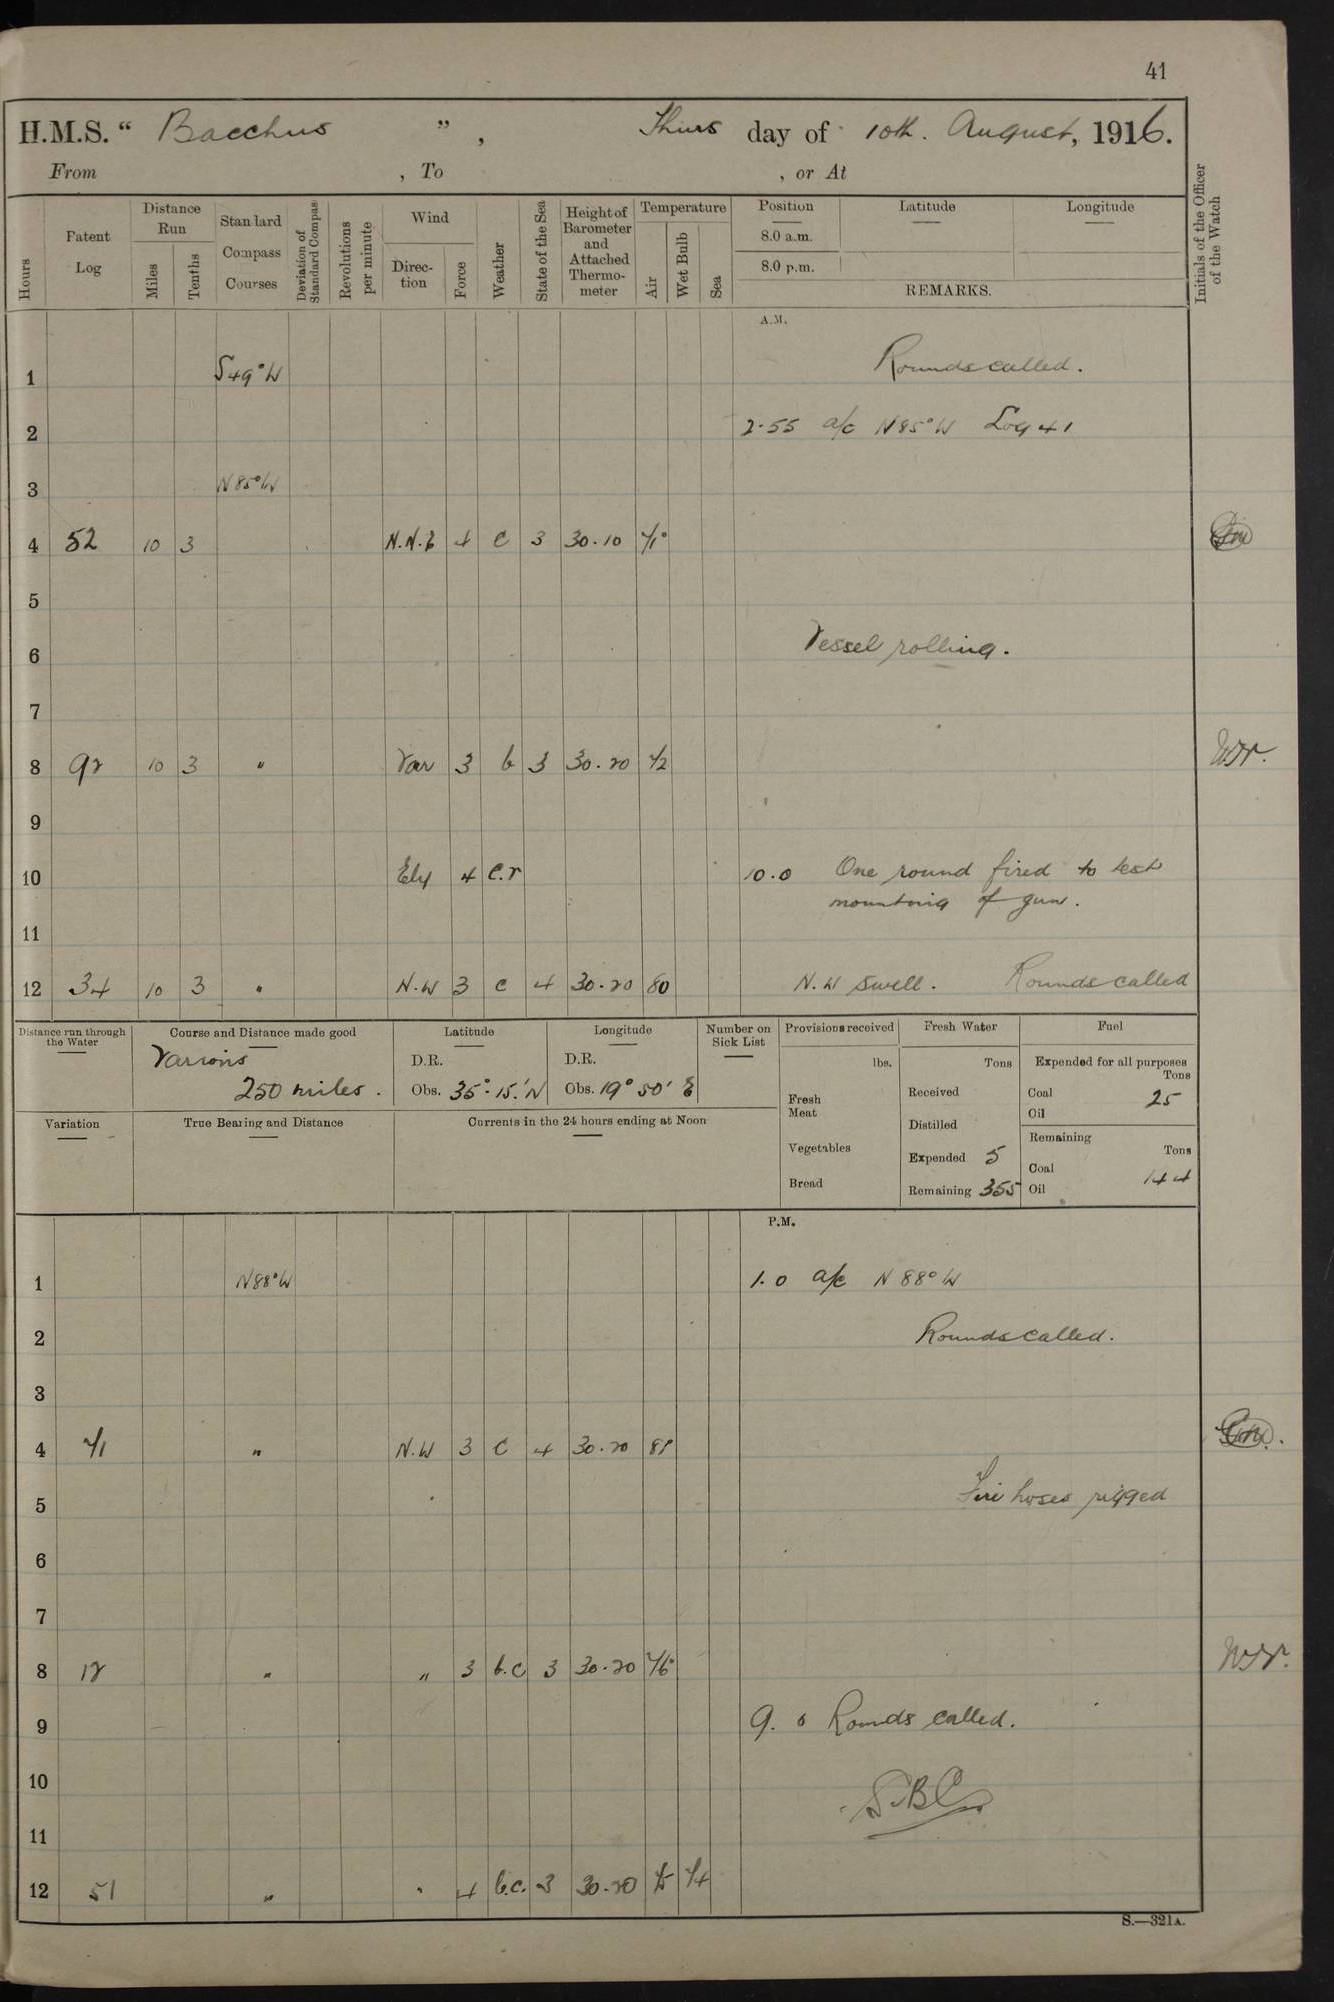 41
H.M.S. “ Bacchus ” , Thurs day of 10th. August, 1916.
From , To , or At
Hours
Patent Log
Distance Run
Miles
Tenths
Standard Compass Courses
Deviation of Standard Compass
Revolutions per minute
Wind
Direction
Force
Weather
State of the Sea
Height of Barometer and Attached Thermometer
Temperature
Air
Wet Bulb
Sea
Position
8.0 a.m.
8.0 p.m.
Latitude
Longitude
REMARKS.
Initials of the Officer of the Watch
A.M.
1 S49°W Rounds called.
2 2.55 a/c N85°W Log 41
3 N85°W
4 52 10 3 N.N.E 4 c 3 30.10 71°
5
6 Vessel rolling.
7
8 92 10 3 " Var 3 b 3 30.20 72
9
10 Ely 4 c.r 10.0 One round fired to test
mounting of gun.
11
12 34 10 3 " N.W 3 c 4 30.20 80 N.W Swell. Rounds called
Distance run through the Water
Course and Distance made good
Various
250 miles.
Latitude
D.R.
Obs. 35°.15.'N
Longitude
D.R.
Obs. 19° 50' E
Number on Sick List
Provisions received
lbs.
Fresh Meat
Vegetables
Bread
Fresh Water
Tons
Received
Distilled
Expended 5
Remaining 355
Fuel
Expended for all purposes
Tons
Coal 25
Oil
Remaining
Tons
Coal 144
Oil
Variation
True Bearing and Distance
Currents in the 24 hours ending at Noon
P.M.
1 N88°W 1.0 a/c N 88° W
2 Rounds called.
3
4 71 " N.W 3 c 4 30.20 81°
5 Fire hoses rigged
6
7
8 12 " " 3 b.c 3 30.20 76°
9 9.0 Rounds called.
10
11
12 51 " " 4 b.c. 3 30.20 75 74
S.—321A.